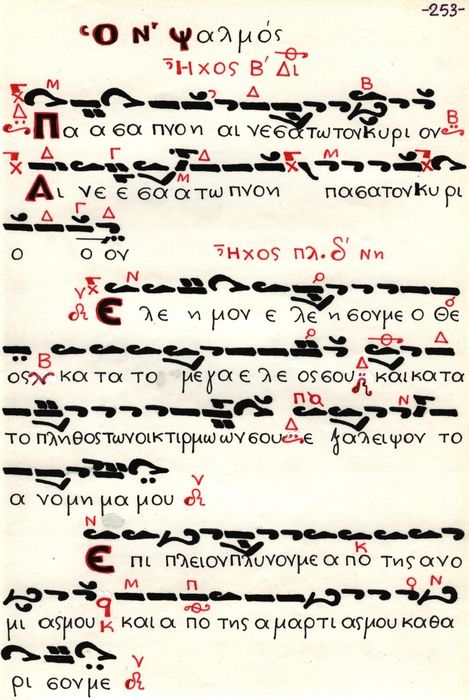 -253-
Ὁ Νʹ Ψαλμός
Ἦχος Βʹ Δι
Πα α σα πνο η αι νε σα τω τον κυ ρι ον
Αι νε ε σα α τω πνο η πα σα τον κυ ρι
ο ο ον Ἦχος πλ. δʹ Νη
Ε λε η μον ε λε η σον με ο Θε
ος κα τα το με γα ε λε ος σου και κα τα
το πλη θος των οικ τιρ μω ων σου ε ξα λειψον το
α νο μη μα μου
Ε πι πλειον πλυ νον με α πο της α νο
μι ας μου και α πο της α μαρ τι ας μου κα θα
ρι σον με